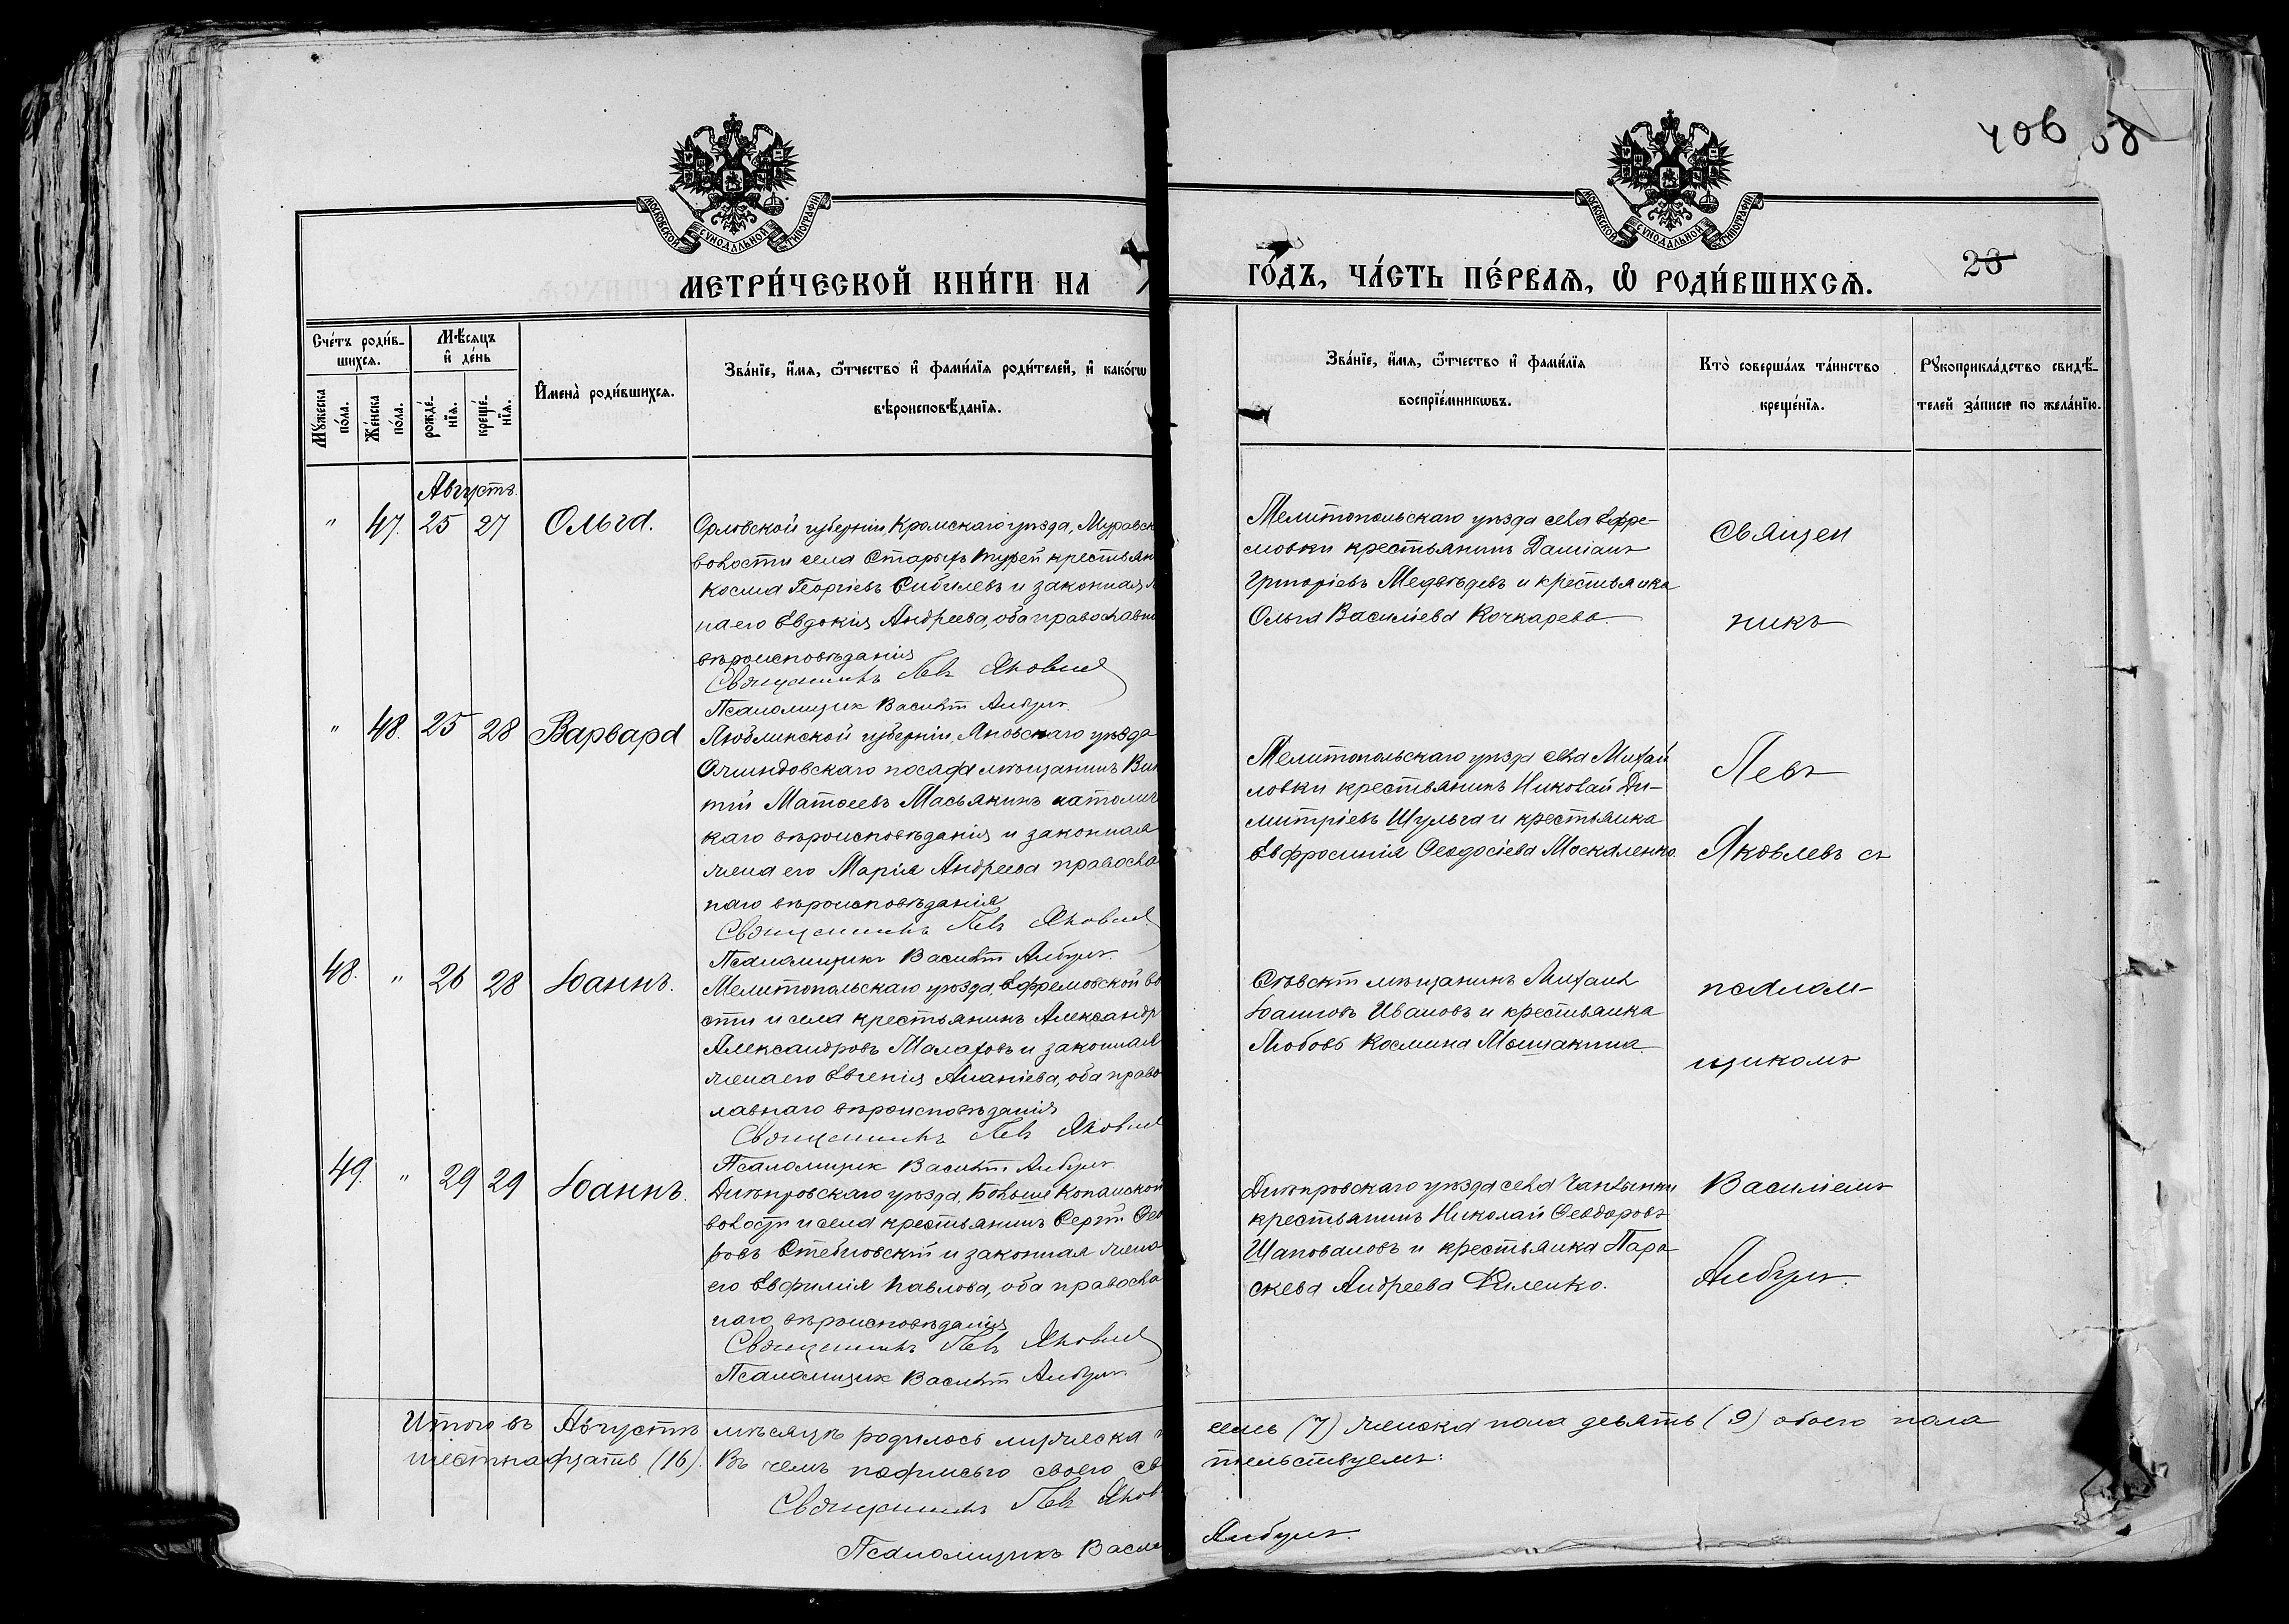 406 58
МОСКОВСКОЙ СѴНОДАЛЬНОЙ ТИПОГРАФІИ
МОСКОВСКОЙ СѴНОДАЛЬНОЙ ТИПОГРАФІИ
МЕТРИ́ЧЕСКОЙ КНИ́ГИ НА
ГО́ДЪ, ЧА́СТЬ ПЕ́РВАѦ, Ѡ҆ РОДИ́ВШИХСѦ.
28
Сче́тъ роди́в-
шихся.
Мꙋ́жеска
по́ла.
Же́нска
по́ла.
Мѣ́сяцъ
и҆ де́нь
рожде́-
нїя.
креще́-
нїя.
И҆мена̀ роди́вшихся.
Зва́нїе, и҆́мя, ѻ҆́тчество и҆ фами́лїя роди́телей, и҆ како́гѡ
вѣроисповѣ́данїя.
Зва́нїе, и҆́мя, ѻ҆́тчество и҆ фами́лїя
воспрїе́мникѡвъ.
Кто̀ соверша́лъ та́инство
креще́нїя.
Рꙋкоприкла́дство свидѣ́-
телей за́писи по жела́нїю.
Августъ.
" 47. 25 27 Ольга.
Орловской губерніи, Кромскаго уѣзда, Муравск
волости села Старыхъ Турей крестьян
Косма Георгіевъ Сибилевъ и законная
на его Евдокія Андреева, оба православн
вѣроисповѣданія
Священникъ Левъ Яковлев
Псаломщик Василій Анбул
Мелитопольскаго уѣзда села Ефре-
мовки крестьянинъ Даміанъ
Григоріевъ Медвѣдевъ и крестьянка
Ольга Василіева Кочкарева
" 48. 25 28 Варвара
Люблинской губерніи, Яновскаго уѣзда
посада мѣщанинъ Вик
тій Матѳеевъ Масьякинъ католич
каго вѣроисповѣданія и законная
жена его Марія Андреева правосла
наго вѣроисповѣданія
Священникъ Левъ Яковлев
Псаломщикъ Василій Анбул
Мелитопольскаго уѣзда села Михай
ловки крестьянинъ Николай Ди-
митріевъ Шульга и крестьянка
Евфросинія Ѳеодосіева Москаленко.
48. " 26 28 Іоаннъ.
Мелитопольскаго уѣзда, Ефремовской во
сти и села крестьянинъ Александр
Александровъ Малаховъ и законная
жена его Евгенія Ананіева, оба право
лавнаго вѣроисповѣданія
Священникъ Левъ Яковлев
Псаломщик Василій Анбул
Сѣвскій мѣщанинъ Михаил
Іоанновъ Ивановъ и крестьянка
Любовь Космина Мѣшакина
49. " 29 29 Іоаннъ.
Днѣпровскаго уѣзда, Больше Копанской
волости и села крестьянинъ Сергій Ѳео
ровъ Стебловскій и законная жена
его Евфимія Павлова, оба правосла
наго вѣроисповѣданія
Священникъ Левъ Яковлев
Псаломщик Василій Анбул
Днѣпровскаго уѣзда села Чаплынки
крестьянинъ Николай Ѳеодоровъ
Шаповаловъ и крестьянка Пара
скева Андреева Филенко.
Священ
никъ
Левъ
Яковлевъ съ
псалом-
щикомъ
Василіемъ
Анбулъ.
Итого въ Августѣ мѣсяцѣ родилось мужеска
семь (7) женска пола девять (9) обоего пола
шестнадцать (16). Въ чемъ подписью своею св
тельствуемъ:
Священникъ Левъ Яков
Псаломщикъ Васил
Анбулъ.